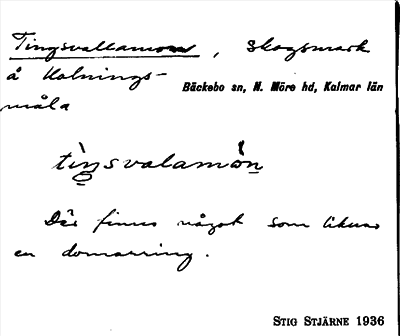 Tingsvallamon, skogsmark
å Kolnings-
måla
Bäckebo sn, N. Möre hd, Kalmar län
tìŋsvalamòn
Där finns något som liknar
en domarring.
STIG STJÄRNE 1936